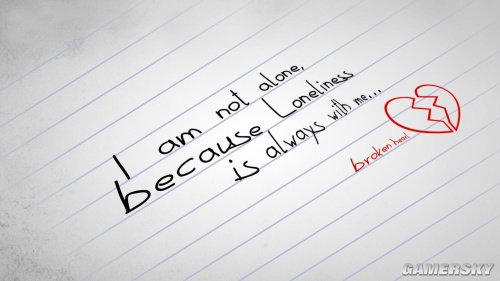 I am not alone,
because Loneliness
is always with me...
broken heart
GAMERSKY